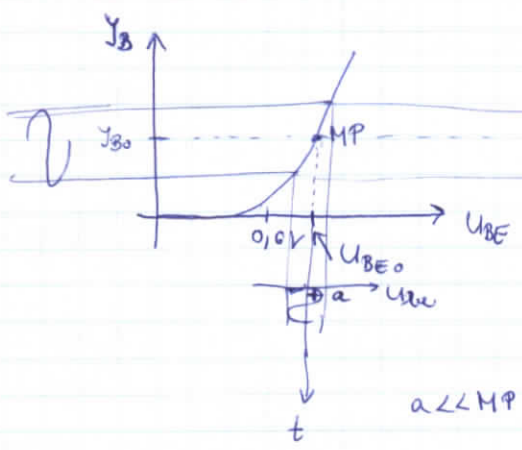 I_B
I_B0
MP
0,6V
U_BE
U_BE0
a
u_be
t
a << MP